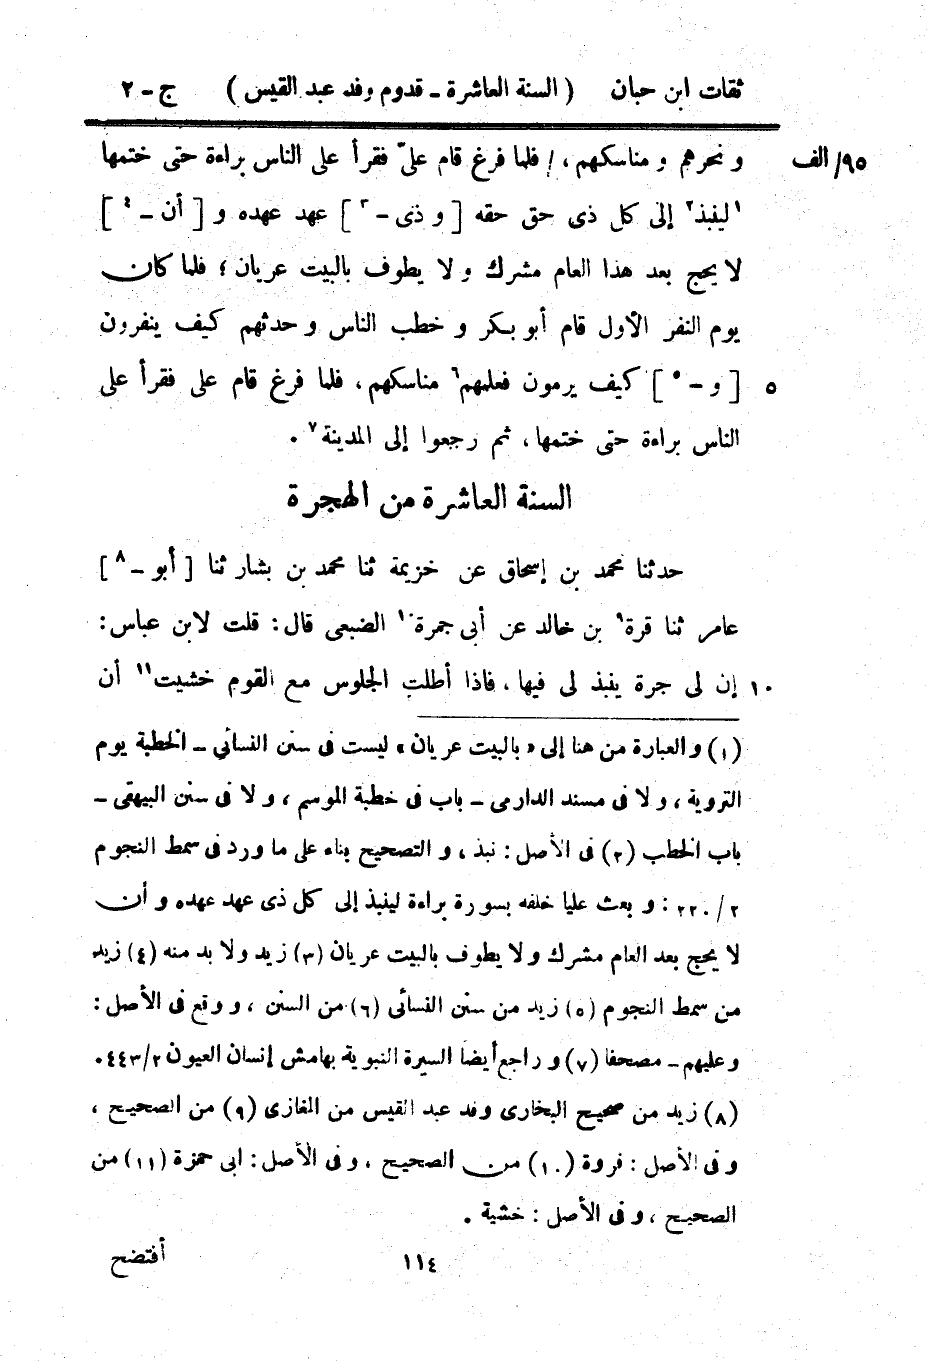 ثقات ابن حبان ( السنة العاشرة ـ قدوم وفد عبد القيس ) ج ـ ٢
و نحرهم و مناسكهم ، / فلما فرغ قام علىّ فقرأ على الناس براءة حتى ختمها ٩٥/ الف
١لينبذ٢ إلى كل ذى حق حقه [ و ذى ـ ٣ ] عهد عهده و [ أن ـ ٤ ]
لا يحج بعد هذا العام مشرك و لا يطوف بالبيت عريان ؛ فلما كان
يوم النفر الأول قام أبو بكر و خطب الناس و حدثهم كيف ينفرون
[ و ـ ٥ ] كيف يرمون فعلمهم٦ مناسكهم ، فلما فرغ قام على فقرأ على ٥
الناس براءة حتى ختمها ، ثم رجعوا إلى المدينة٧ .
السنة العاشرة من الهجرة
حدثنا محمد بن إسحاق عن خزيمة ثنا محمد بن بشار ثنا [ أبو ـ ٨ ]
عامر ثنا قرة٩ بن خالد عن أبى جمرة١٠ الضبعى قال : قلت لابن عباس :
إن لى جرة ينبذ لى فيها ، فاذا أطلت الجلوس مع القوم خشيت١١ أن ١٠
(١) و العبارة من هنا إلى « بالبيت عريان » ليست فى سنن النسائي ـ الخطبة يوم
التروية ، و لا فى مسند الدارمى ـ باب فى خطبة الموسم ، و لا فى سنن البيهقى ـ
باب الخطب (٢) فى الأصل : نبذ ، و التصحيح بناء على ما ورد فى سمط النجوم
٢ / ٢٢٠ : و بعث عليا خلفه بسورة براءة لينبذ إلى كل ذى عهد عهده و أن
لا يحج بعد العام مشرك و لا يطوف بالبيت عريان (٣) زيد ولا بد منه (٤) زيد
من سمط النجوم (٥) زيد من سنن النسائى (٦) من السنن ، و وقع فى الأصل :
و عليهم ـ مصحفا (٧) و راجع أيضا السيرة النبوية بهامش إنسان العيون ٢/ ٤٤٣ .
(٨) زيد من صحيح البخارى وفد عبد القيس من المغازى (٩) من الصحيح ،
و فى الأصل : فروة (١٠) من الصحيح ، و فى الأصل : ابى حمزة (١١) من
الصحيح ، و فى الأصل : خشية .
١١٤ أفتضح